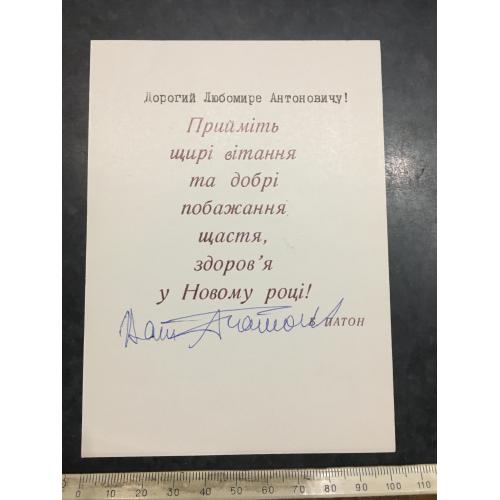 Дорогий Любомире Антоновичу!
Прийміть
щирі вітання
та добрі
побажання
щастя,
здоров'я
у Новому році!
Б ПАТОН
0 10 20 30 40 50 60 70 80 90 100 110